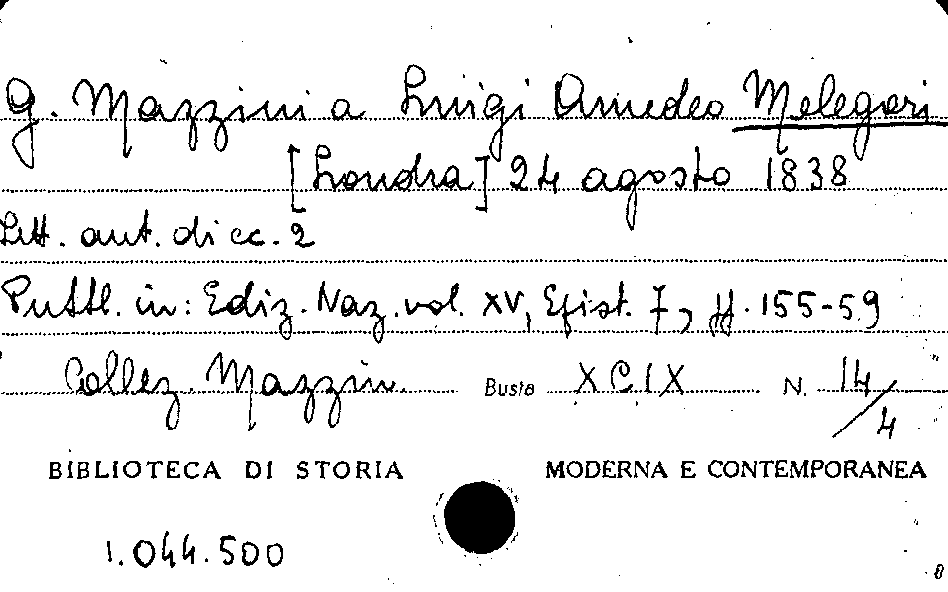 G. Mazzini a Luigi Amedeo Melegari
[Londra] 24 agosto 1838
Lett. aut. di cc. 2
Pubbl. in: Ediz. Naz. vol. XV, Epist. 7, pp. 155-59
Collez. Mazzini Busta XCIX N. 14/4
BIBLIOTECA DI STORIA MODERNA E CONTEMPORANEA
1.044.500